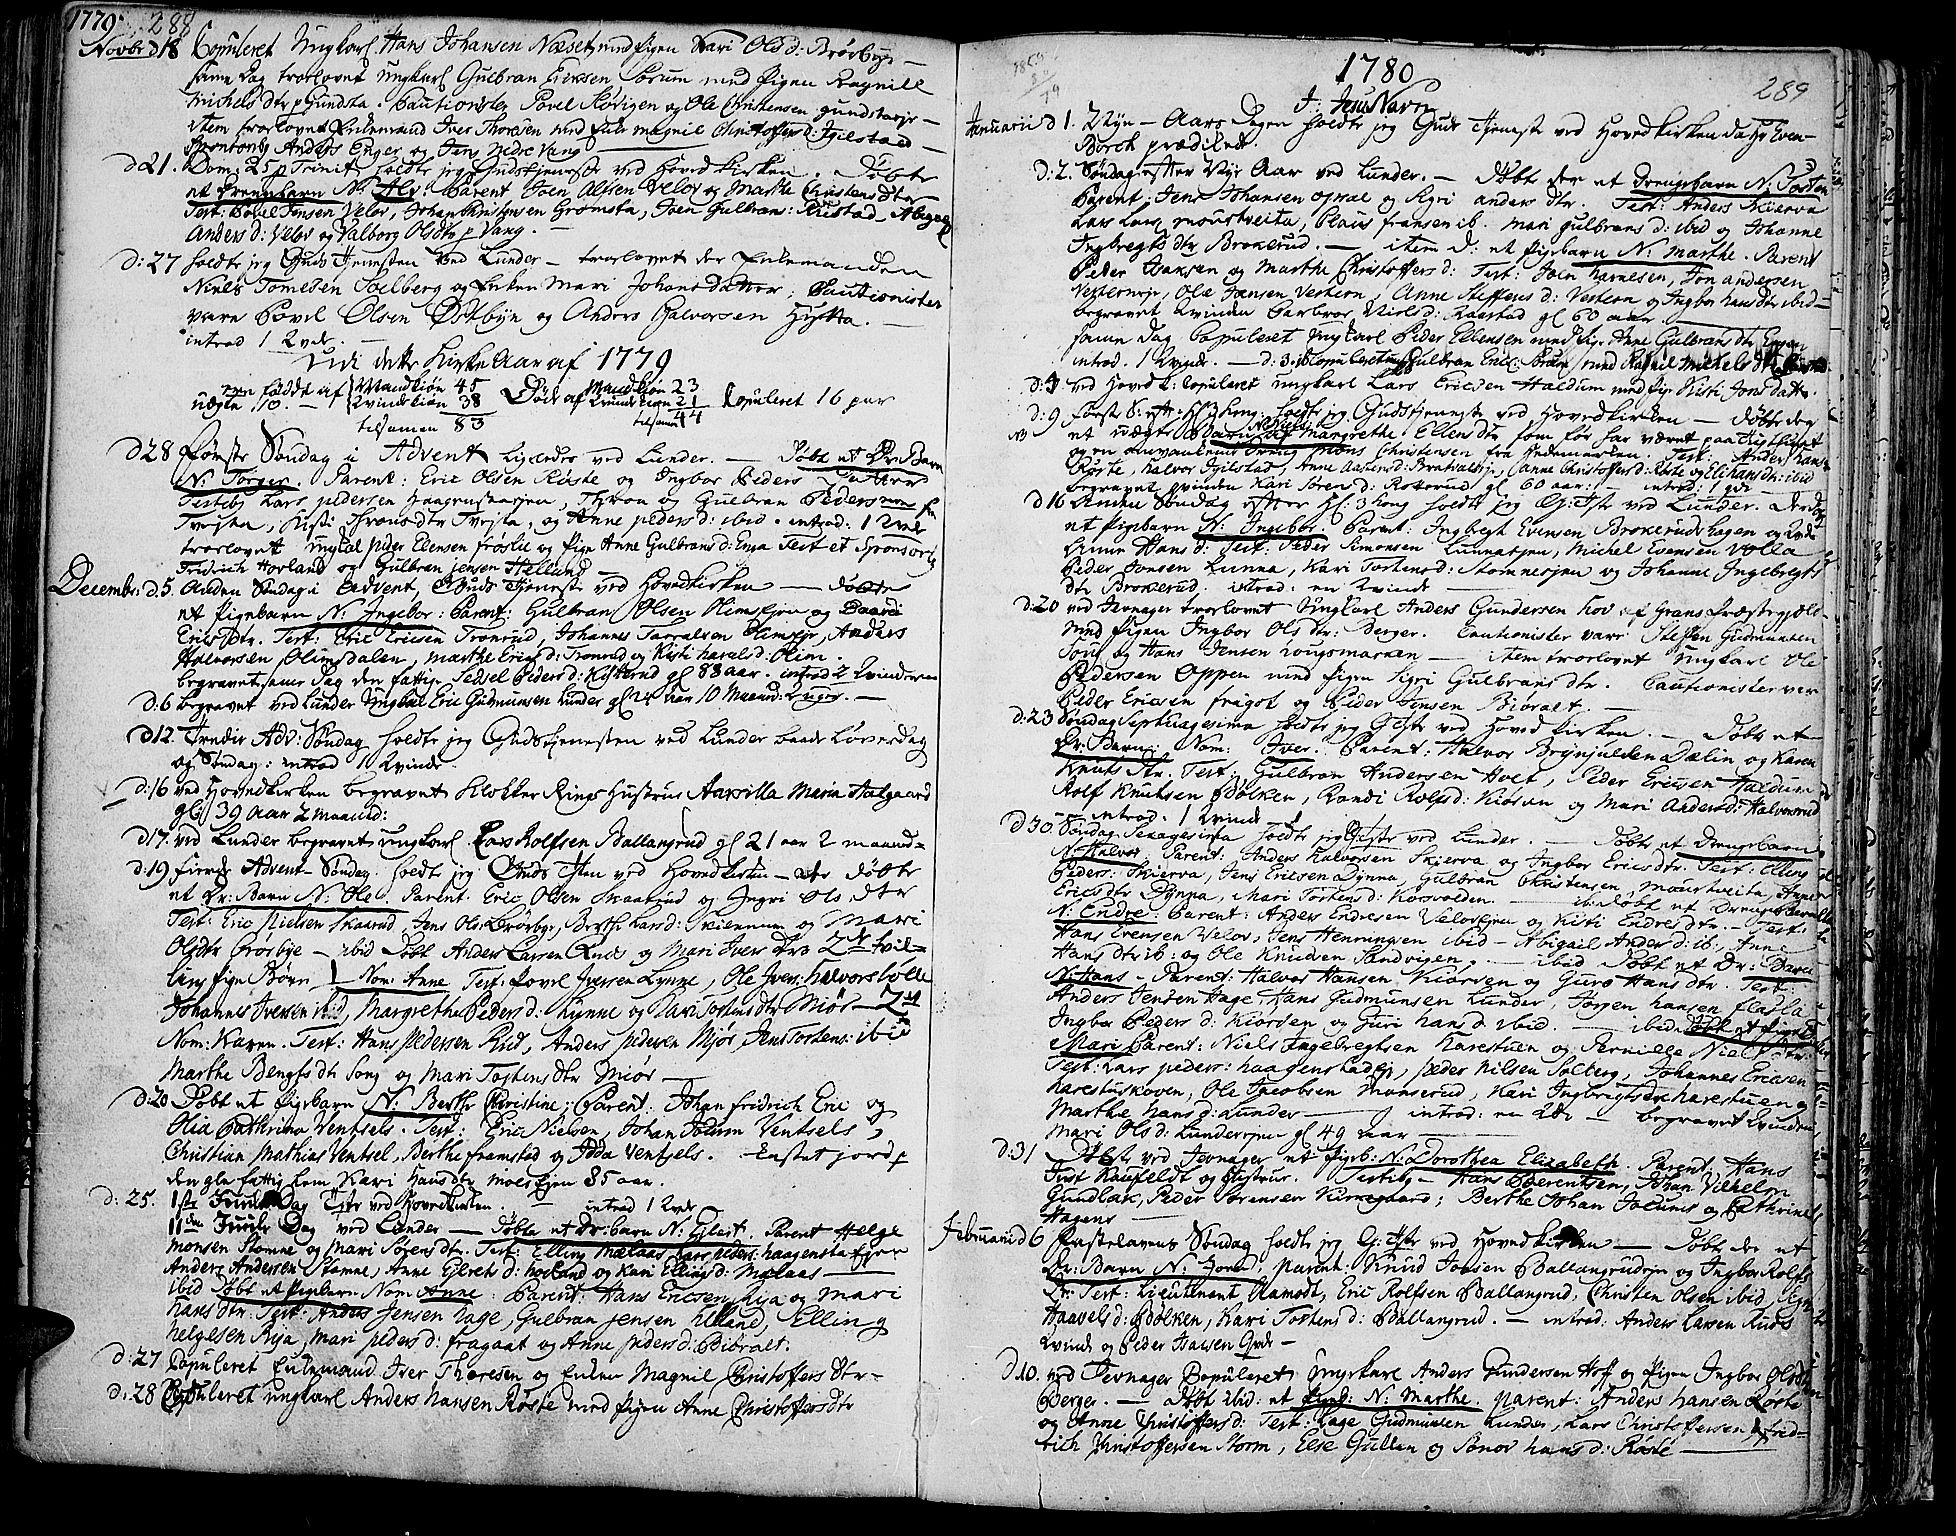 1779. 288
Novbr d 18 Copuleret Ungkarl Hans Johansen Næset med Pigen Kari Ols d: Brørbye —
samme Dag trorlovet Ungkarl Gulbran Ericksen Sørum med Pigen Ragnill
Michels dtr p Gundsta. Cautionister Povel Skörigen og Ole Christensen gundstaeje —
item trorlovet Enkemand Iver Thorsen med Enke Magnil Christoffers d: Igilstad —
Sponsorib Anders Enger og Jens Nedre Vang
d 21. Dom: 25 p Trinit: holdte jeg Gudstjeneste ved Hovedkirken. Døbte
et Drengebarn N: Alv Parent Joen Olsen Velov og Marthe Christens dtr
Test: Povel Jensen Velov, Johan Christensen Gromsta, Joen Gulbrans: Kiustad, Abegael
Anders d: Velov og Valborg Olsdtr p Vang. —
d: 27 holdte jeg Guds Tjenesten ved Lunder — trorlovet der Enkemanden
Niels Tomesen Solberg og Enken Mari Johans datter; Cautionister
vare Povel Olsen Østbyn og Anders Halvorsen Hytta. —
introd 1 Qvde.
Udi dette Kirke Aar af 1779
ere fødde af Mandkiøn 45 Døde af Mandkiøn 23 Copuleret 16 par
uægte 10. — Qvindekiøn 38 Qvindekiøn 21
tilsamen 83 tilsamen 44
d 28 Første Søndag i Advent ligeledes ved Lunder. — Døbt et Dr: Barn
N: Torger. Parent: Eric Olsen Røste og Ingbor Peders Datter
Testib: Lars pedersen Haagenstaaejen, Thron og Gulbran Pedersenner fra
Tvejsta, Kisti Throns dtr Tvejsta, og Anne peders d: ibid. introd: 1 Qvde
trorlovet ungkal peder Ellensen frøslie og Pige Anne Gulbrans d: Enga Test et Sponsorib
Fridrich Horland og Gulbran jensen Hellund
Decembr: d 5. Anden Søndag i Advent, Guds Tjeneste ved Hovedkirken — døbte
et Pigebarn N: Ingebor: Parent: Gulbran Olsen Olimsejen og
Erics dtr. Test: Eric Ericsen Tronrud, Johannes Tarralsen Olimseje, Anders
Halvorsen Olimsdalen, Marthe Erics d: Tronrud og Kisti haralsd: Olim.
begravet samme Dag den fattige Sedsel Peders d: Kisterud gl 88 aar. introd 2 Qvinder
d: 6 begravet ved Lunder Ungkal Eric Gudmunsen Lunder gl 24 aar 10 Maaned: 4 Uger. —
d 12. Tredie Adv: Søndag holdte jeg Gudstjenesten ved Lunder baade Løverdag
og Søndag: introd 1 Qvinde.
d: 16 ved Hovedkirken begravet Klokker Rings Hustrue Aarsilla Maria Aalgaard
gl: 39 aar 2 maaned:
d: 17. ved Lunder begravet ungkarl Lars Rolfsen Ballangrud gl 21 aar 2 maaned —
d: 19 fierde Advent Søndag holdte jeg Guds Tjen ved Hovedkirken — der døbte
et Dr: Barn N: Ole. Parent. Eric Olsen Skaarud og Ingri Ols dtr
Test: Eric Nielsen Skaarud, Jens Olsen Brørbye, Berthe Lars d: Skiennum og Mari
Olsdtr brørbye — ibid Døbt Anders Larsen Rud og Mari Ivers dtrs 2de tvil=
ling pige Børn 1 Nom: Anne Test. povel Iversen Lynne, Ole Ivers: halvorsbølle
Johannes Iversen ibid, Margrethe Peders d: Kynne og Kari Tostens dtr Miör — 2den
Nom: Karen. Test: Hans Pedersen Rud, Anders pedersen Mjör, Jens Tostens: ibid
Marthe Bengts dtr Song og Mari Tostens dtr Miör —
d: 20 Døbt et Pigebarn N: Berthe Christine; Parent: Johan Fridrich Eric og
Olia Cathrina Ventsels. Test: Eric Nielsen, Johan Jocum Ventsels,
Christian Mathias Ventsel, Berthe framstad og Idda Ventsels. — Castet jord p
den gle fattig Lem Kari Hans dtr Moesejen 85 aar.
d: 25. 1ste Juule Dag Tjste ved Hovedkirken. — introd 1 Qvde
11den Juule Dag ved Lunder — Døbte et Dr: barn N: Glert. Parent Helge
Monsen Stomne og Mari Sørens dtr. Test: Elling Mælaas Lars peders: haagenstaejen
Anders Andersen Stomne, Anne Glerets d: hovland og Kari Ellings d: Mælaas —
ibid Døbt et Pigebarn Nom: Anne: Parent: Hans Ericsen Rija og Mari
Hans dtr: Test. Anders Jensen Hage, Gulbran jensen Elland, Elling
helgesen Rija, Mari peders d: fragaat og Anne peders d: Biöralt.
d: 27 Copuleret Enkemand Iver Thoresen og Enken Magnil Christoffers dtr —
d: 28 Copuleret ungkarl Anders hansen Røste med Pigen Anne Christoffers dtr
1780
I: Jesu Navn
289
Januarii d 1. Nyn — Aars Dagen holdte jeg Guds Tjeneste ved Hovedkirken da
Borch prædiket.
d: 2. Søndag efter Nyt Aar ved Lunder. — Døbt der et Drengebarn N: Tosten
Parent: Jens Johansen opsal og Sigri anders dtr. Test: Anders Skierva
Lars Lars: moustveita, Claus fransen ib. Mari gulbrans d: ibid og Johanne
Ingbregts dtr Brokerud. — item d: et Pigebarn N: Marthe. Parent
Peder Hansen og Marthe Christoffers d: Test: Joen Karnelsen, Jon andersen
Vesterneje, Ole Jensen Vestern, Anne Steffens d: Vestern og Ingbor hans dtr ibid —
begravet Qvinden Barbroe Niels d: Kaastad gl 60 aar.
samme Dag Copuleret Ungkarl Peder Ellensen med Pige Anne Gulbrans dtr Engen
introd. 1 Qvinde. — d: 3: ib Copuleret ung Gulbran Eric: Sørum med Ragnil Michels dtr
d: 7 ved Hoved K: Copuleret ungkarl Lars Ericsen Haldum med Pige Kisti Jens datter
d: 9 første S: eft: H: 3 Kong: holdt jeg Gudstjeneste ved Hovedkirken — døbte deg
et uægte Barn af Margrethe Ellens dtr som før har været paa Tugthuset
og en Mons Christensen fra Hedemarken. Test: Anders hansen
Røste, halvor Igilstad, Anne Aastens d: Bratvalseje, Anne Christoffers d: Røste og Eli hans d: ibid
begravet qvinden Kari Søren d: Rotterud gl 60 aar: — introd: 1 qde —
d 16 Anden Søndag efter H: 3 Kong holdt jeg G: Tste ved Lunder. Der døbt
et Pigebarn N: Ingebor: Parent: Ingbregt Evensen Brokerudshagen og
Hans d: Test: Peder Simonsen Lunnaejen, Michel Evensen Volla
Peder Jonsen Lunna, Kari Tostens d: Stomnesejen og Johanne Ingebregts
dtr Brokerud. introd: en Qvinde —
d: 20 ved Jevnager trorlovet Ungkarl Anders Gundersen Hov af Grans Præstegield
med Pigen Ingbor Ols dtr: Berger. Cautionister vare Steffen Gudmunsen
Tove og Hans Jensen Longsmarken — item trorlovet Ungkarl Ole
Pedersen Oppen med Pigen Sigri Gulbrans dtr. Cautionister vare
Peder Ericsen fragot og Peder Jensen Biöralt. —
d: 23 Søndag Septuagesima holdte jeg G: Tste ved Hoved Kirken. — Døbt et
Dr: Barn: Nom: Iver: Parent: Halvor Brynjulsen Dælin og Karen
Knuts dtr. Test: Gulbran Andersen Holt, Peder Ericsen Haldum
Rolf Knutsen Bølken, Randi Rolfs d: Kiörven og Mari Anders d: Halvorsrud
— introd: 1 Qvinde
d 30. Søndag Sexagesima holdte jeg G: Tjste ved Lunder. — Døbt et Drengebarn
N: Halvor Parent: Anders halvorsen Skierva og Ingbor Erics dtr Test: Elling
Peders: Skierva, Jens Ericsen Dynna, Gulbran Christensen, Moustveita, Anne
Erics dtr Dynna, Mari Tostens d: Kosvolden. — ibid døbt et Drengebarn
N: Endre: Parent: Anders Endresen Velovsejen og Kisti Endres dtr. — Test:
Hans Evensen Velov, Jens Henningsen ibid — Abigail Anders d: ib, Anne
Hans dtr ib: og Ole Knudsen Sandvigen. — ibid Døbt et Dr: Barn
N: Hans — Parent: Halvor Hansen Kiörven og Guro Hans dtr. Test:
Anders Jensen Hage, Hans Gudmunsen Lunder, Torgen hansen fladla
Ingbor Peders d: Kiørven og Guri hans d: ibid. — ibid Døbt et Pigeb
Mari Parent: Niels Ingebregtsen Karestuen og Pernille Niels dtr
Test: Lars peders: haagenstadeje, Peder Nilsen Solberg, Johannes Ericsen
Karestuskoven, Ole Jacobsen Monserud, Kari Ingbregts dtr harestuen og
Marthe Hans d: Lunder — introd: en Qde — begravet Qvinden
Mari Ols d: Lundersejen gl 49 aar —
d: 31 Døbt ved Jevnager et Pigeb: N: Dorothea Elizabeth. Parent, Hans
Just Kaufeldt og Hustrue. Testib — Hans Berentsen, Johan Vilhelm
Gundlak, Peder Sørensen Kirregaard; Berthe Johan Jocums og Cathrine
Hagens —
Februarii d 6 Fastelavens Søndag holdte jeg G: Tjste ved Hovedkirken — Døbt der et
Dr: Barn N: Joen, Parent: Knud Joensen Ballangrudejn og Ingbor Rolfs
Dr: Test: Lieutenant Ramodt, Eric Rolfsen Ballangrud, Christen Olsen ibid,
Haavels d: Bølken, Kari Tostens d: Ballangrud. — introd: Anders Larsen Ruds
Qvinde og Peder Hansen Qvde —
d 10. ved Jevnager Copuleret Ungkarl Anders Gundersen Hoff og Pigen Ingbor Olsdtr
Berger. — Døbt ibid: et Pigeb: N: Marthe. Parent: Anders hansen Røste
og Anne Christoffers d: Test: Hage Gudmunsen Lunder, Lars Christoffersen frid=
rich Christoffersen Storm, Else Gullen og Sønov hans d: Røste —